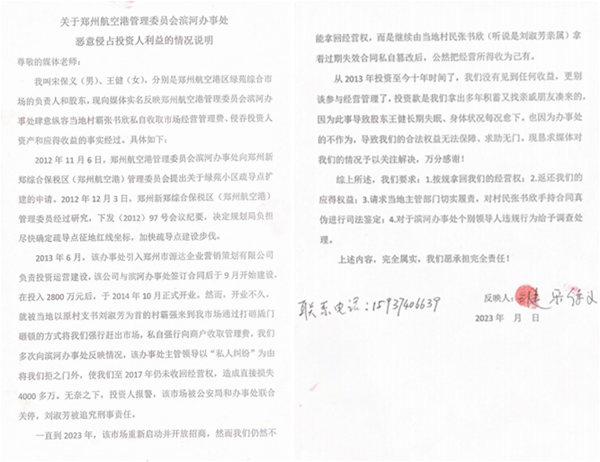 关于郑州航空港管理委员会滨河办事处
恶意侵占投资人利益的情况说明
尊敬的媒体老师：
我叫宋保义（男）、王健（女），分别是郑州航空区绿苑综合市
场的负责人和股东，现向媒体实名反映郑州航空港管理委员会滨河办
事处肆意纵容当地村霸张书欣私自收取市场经营管理费、侵吞投资人
资产和应得收益的事实经过，具体如下：
2012 年 11 月 6 日，郑州航空港管理委员会滨河办事处向郑州新
郑综合保税区（郑州航空港）管理委员会提出关于绿苑小区疏导点扩
建的申请。2012 年 12 月 3 日，郑州新郑综合保税区（郑州航空港）
管理委员经过研究，下发（2012）97 号会议纪要，决定规划局负担
尽快确定疏导点征地红线坐标，加快疏导点建设步伐。
2013 年 6 月，该办事处引入郑州市源达企业营销策划有限公司
负责投资运营建设，该公司与滨河办事处签订合同后于 9 月开始建设，
在投入 2800 万元后，于 2014 年 10 月正式开业，然而，开业不久，
就被当地以原村支书刘淑芳为首的村霸强来到我市场通过打砸撬门
砸锁的方式将我们强行赶出市场，私自强行向商户收取管理费，我们
多次向滨河办事处反映情况，该办事处主管领导以“私人纠纷”为由
将我们拒之门外，使我们至 2017 年仍未收回经营权，造成直接损失
4000 多万。无奈之下，投资人报警，该市场被公安局和办事处联合
关停，刘淑芳被追究刑事责任。
一直到 2023 年，该市场重新启动并开放招商，然而我们仍然不
能拿回经营权，而是继续由当地村民张书欣（听说是刘淑芳亲属）拿
着过期失效合同私自篡改后，公然把经营所得收为己有。
从 2013 年投资至今十年时间了，我们没有见到任何收益，更别
谈参与经营管理了，投资款是我们拿出多年积蓄又找亲戚朋友凑来的，
因为此事导致股东王健长期失眠、身体状况每况愈下。也因为办事处
的不作为，导致我们的合法权益无法保障、求助无门。现恳求媒体对
我们的情况予以关注解决，万分感谢！
综上所述，我们要求：1.按规拿回我们的经营权；2.返还我们的
应得权益；3.请求当地主管部门切实履责，对村民张书欣手持合同真
伪进行司法鉴定；4.对于滨河办事处个别领导人违规行为给予调查处
理。
上述内容，完全属实，我们愿承担完全责任！
反映人：王健 宋保义
联系电话：15937406639
2023 年 月 日